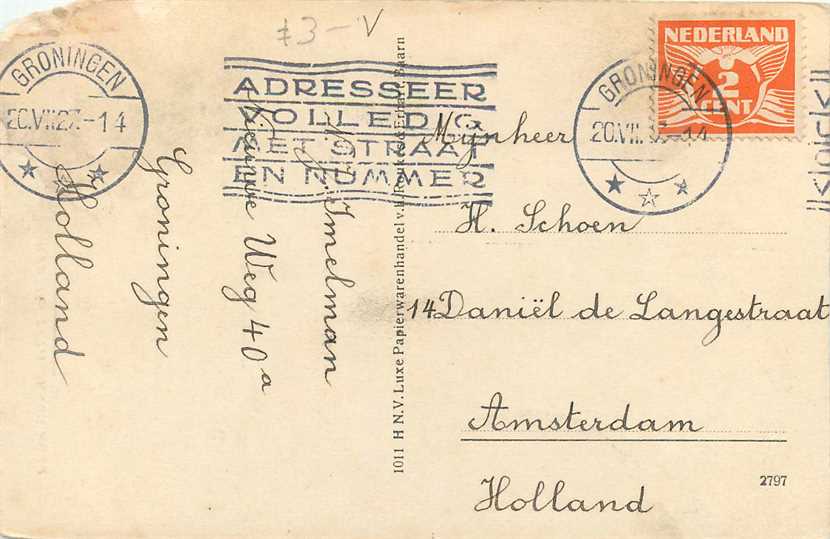 ≠3-V
GRONINGEN
20.VII.27.-14
ADRESSEER
VOLLEDIG
MET STRAAT
EN NUMMER
GRONINGEN
20.VII. -14
NEDERLAND
2
CENT
Imelman
Nieuwe Weg 40a
Groningen
Holland
1011 H N.V. Luxe Papierwarenhandel v.h. Baarn
Mijnheer
H. Schoen
14 Daniël de Langestraat
Amsterdam
Holland
2797